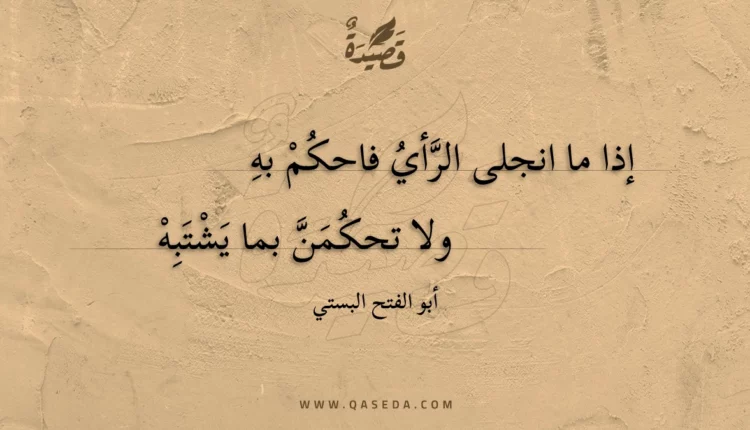 قَصِيدَةٌ
إذا ما انجلى الرَّأيُ فاحكُمْ بهِ
ولا تحكُمَنَّ بما يَشْتَبِهْ
أبو الفتح البستي
WWW.QASEDA.COM